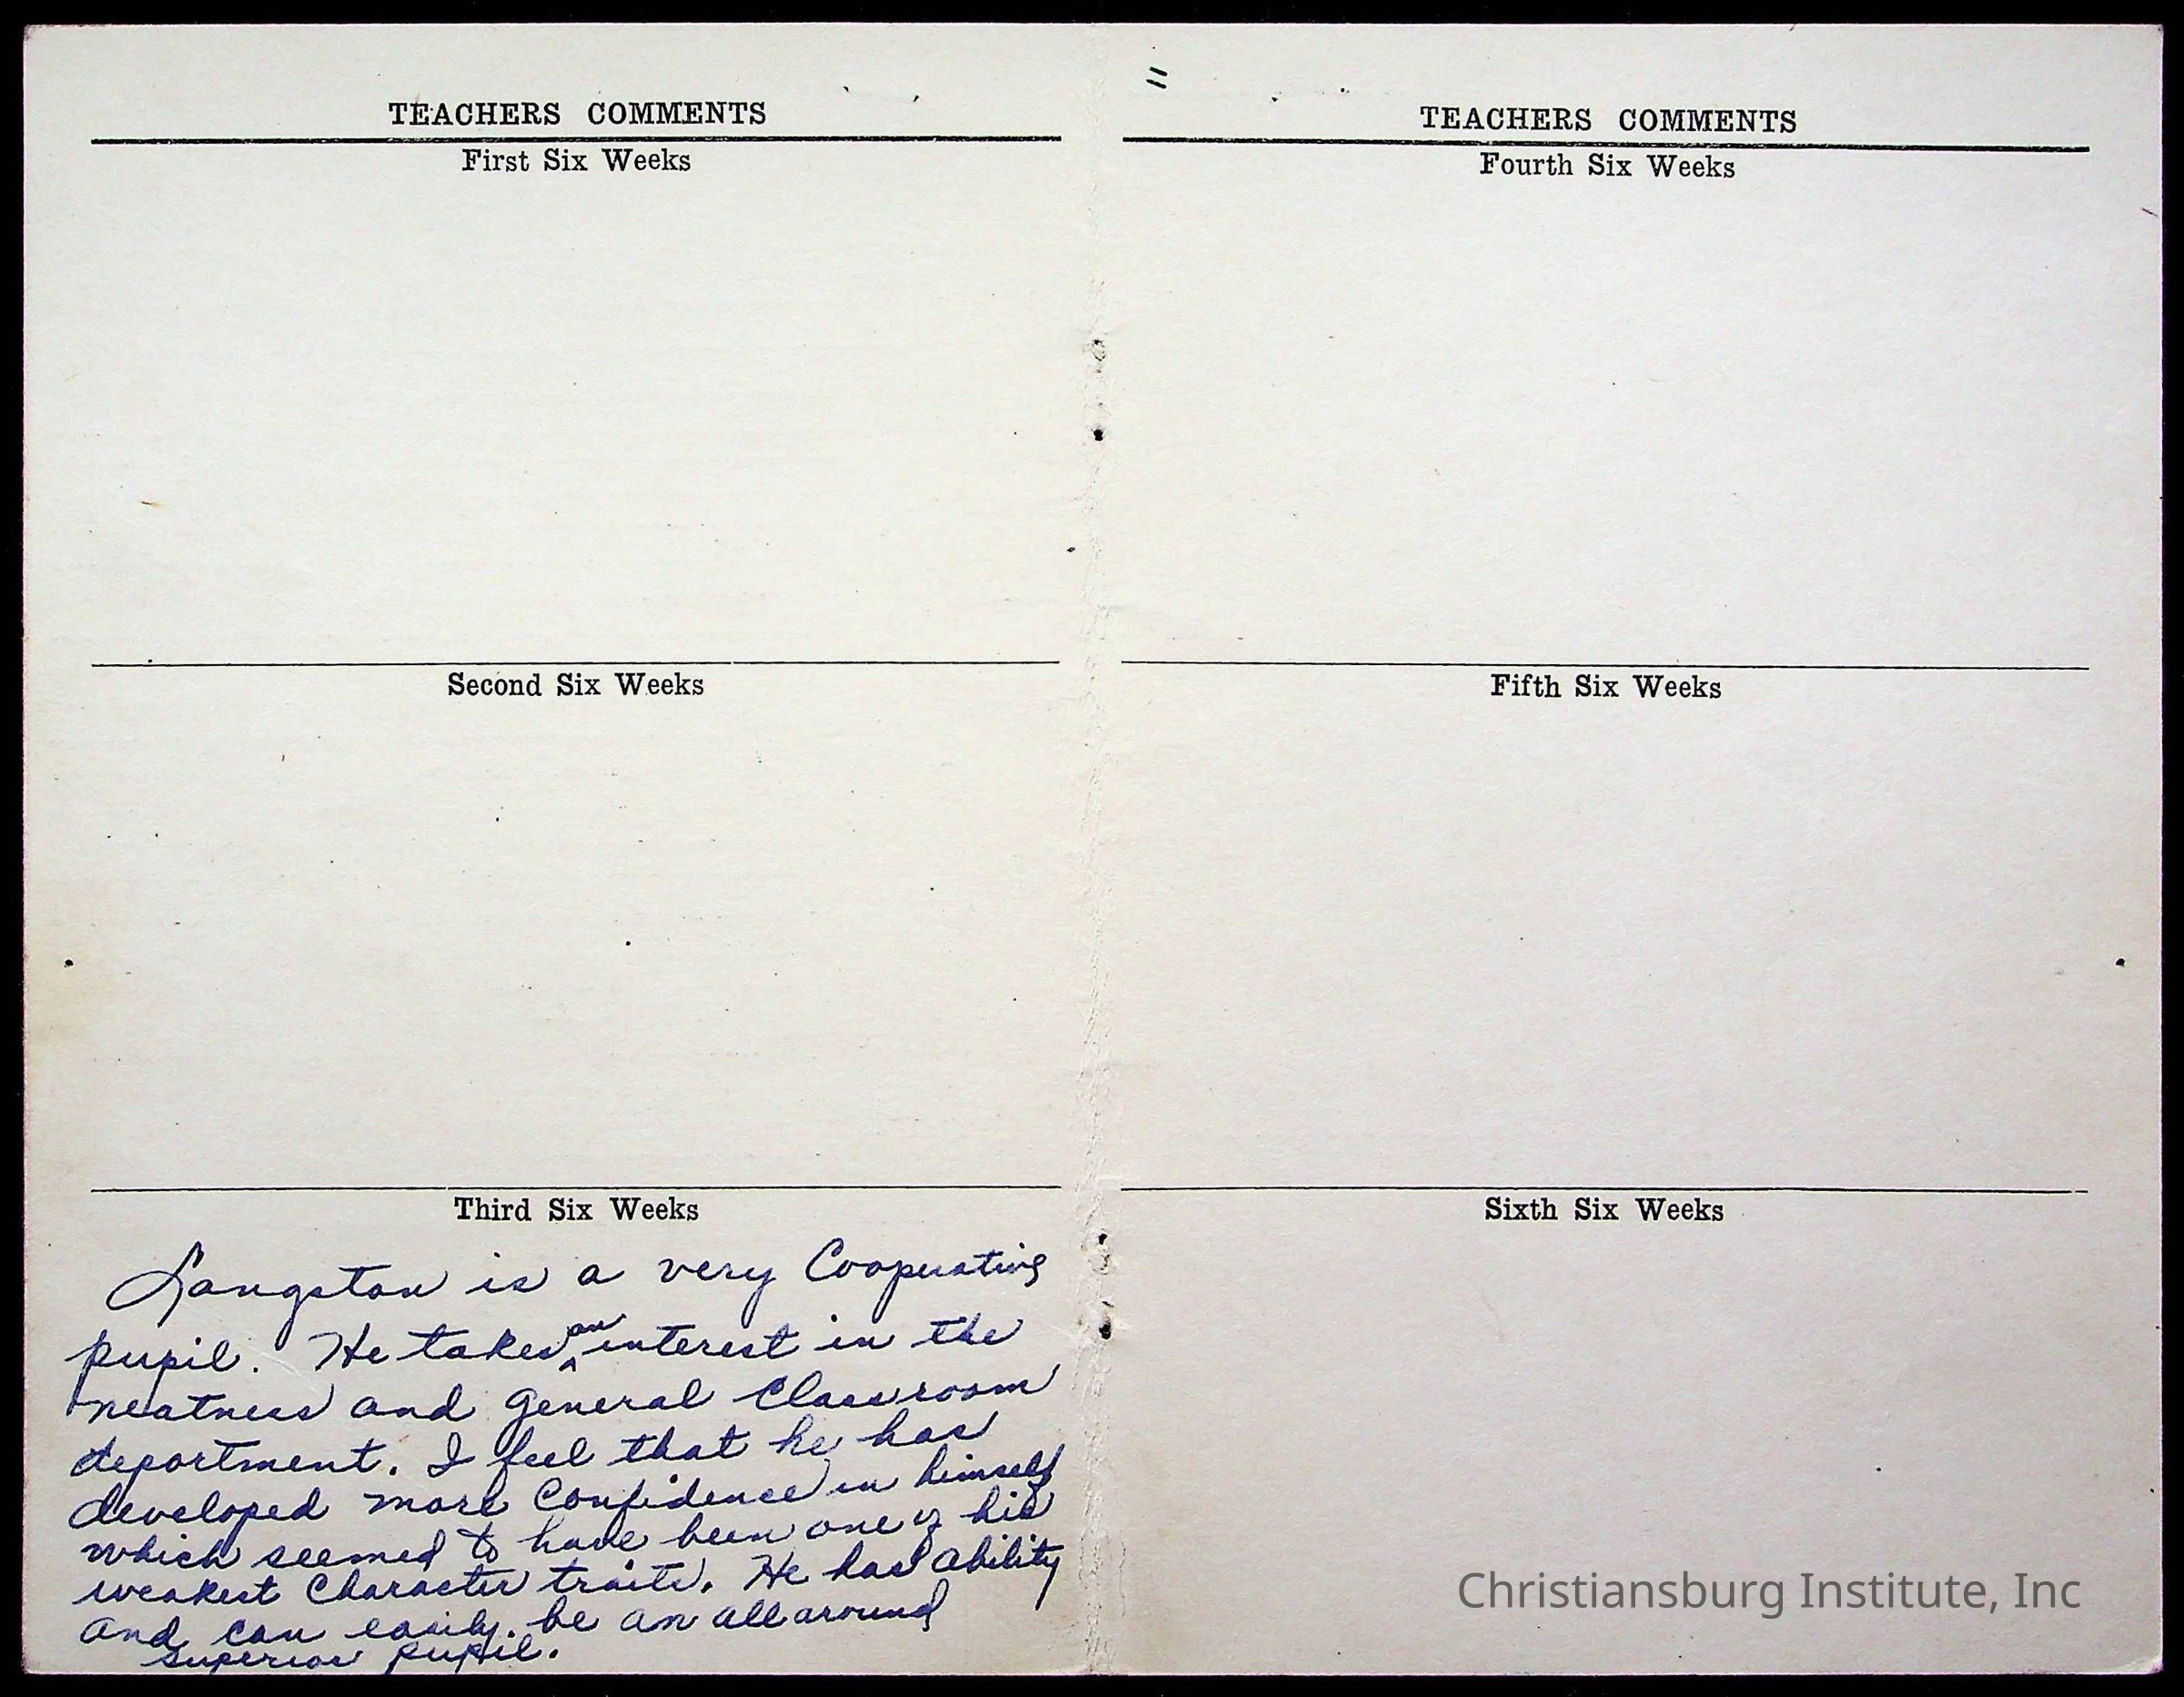 TEACHERS COMMENTS
First Six Weeks
Second Six Weeks
Third Six Weeks
Langston is a very Cooperative
pupil. He takes an interest in the
neatness and general Classroom
deportment. I feel that he has
developed more Confidence in himself
which seemed to have been one of his
weakest Character traits. He has ability
and can easily be an all around
superior pupil.
TEACHERS COMMENTS
Fourth Six Weeks
Fifth Six Weeks
Sixth Six Weeks
Christiansburg Institute, Inc